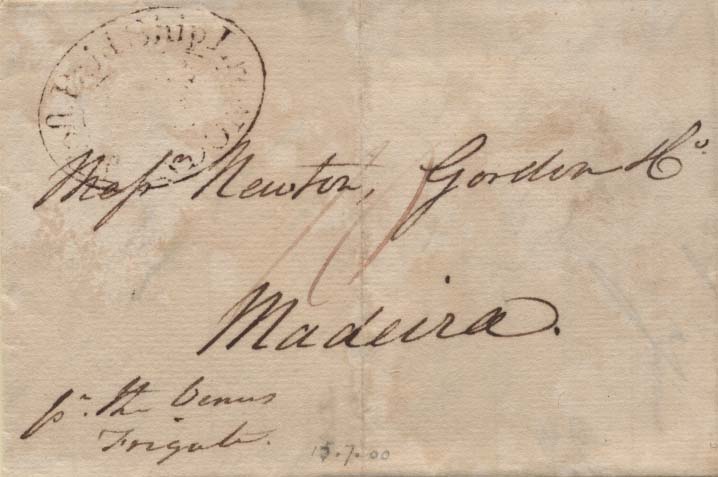 Paid Ship Lr
Messrs Newton, Gordon & Co
Madeira.
pr. the Venus
Frigate.
15.7.00